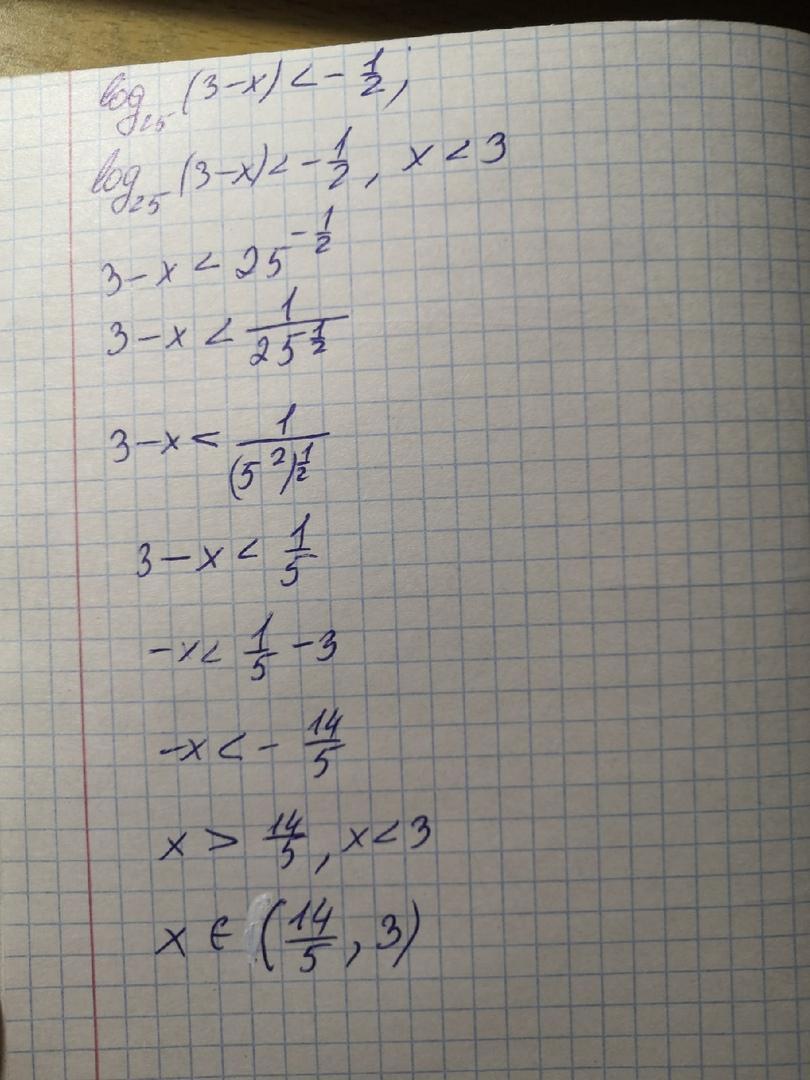 log₂₅ (3-x) < - 1/2 ;
log₂₅ (3-x) < - 1/2 , x < 3
3 - x < 25^(-1/2)
3 - x < 1/25^(1/2)
3 - x < 1/(5²)^(1/2)
3 - x < 1/5
-x < 1/5 - 3
-x < - 14/5
x > 14/5 , x < 3
x ∈ (14/5 , 3)